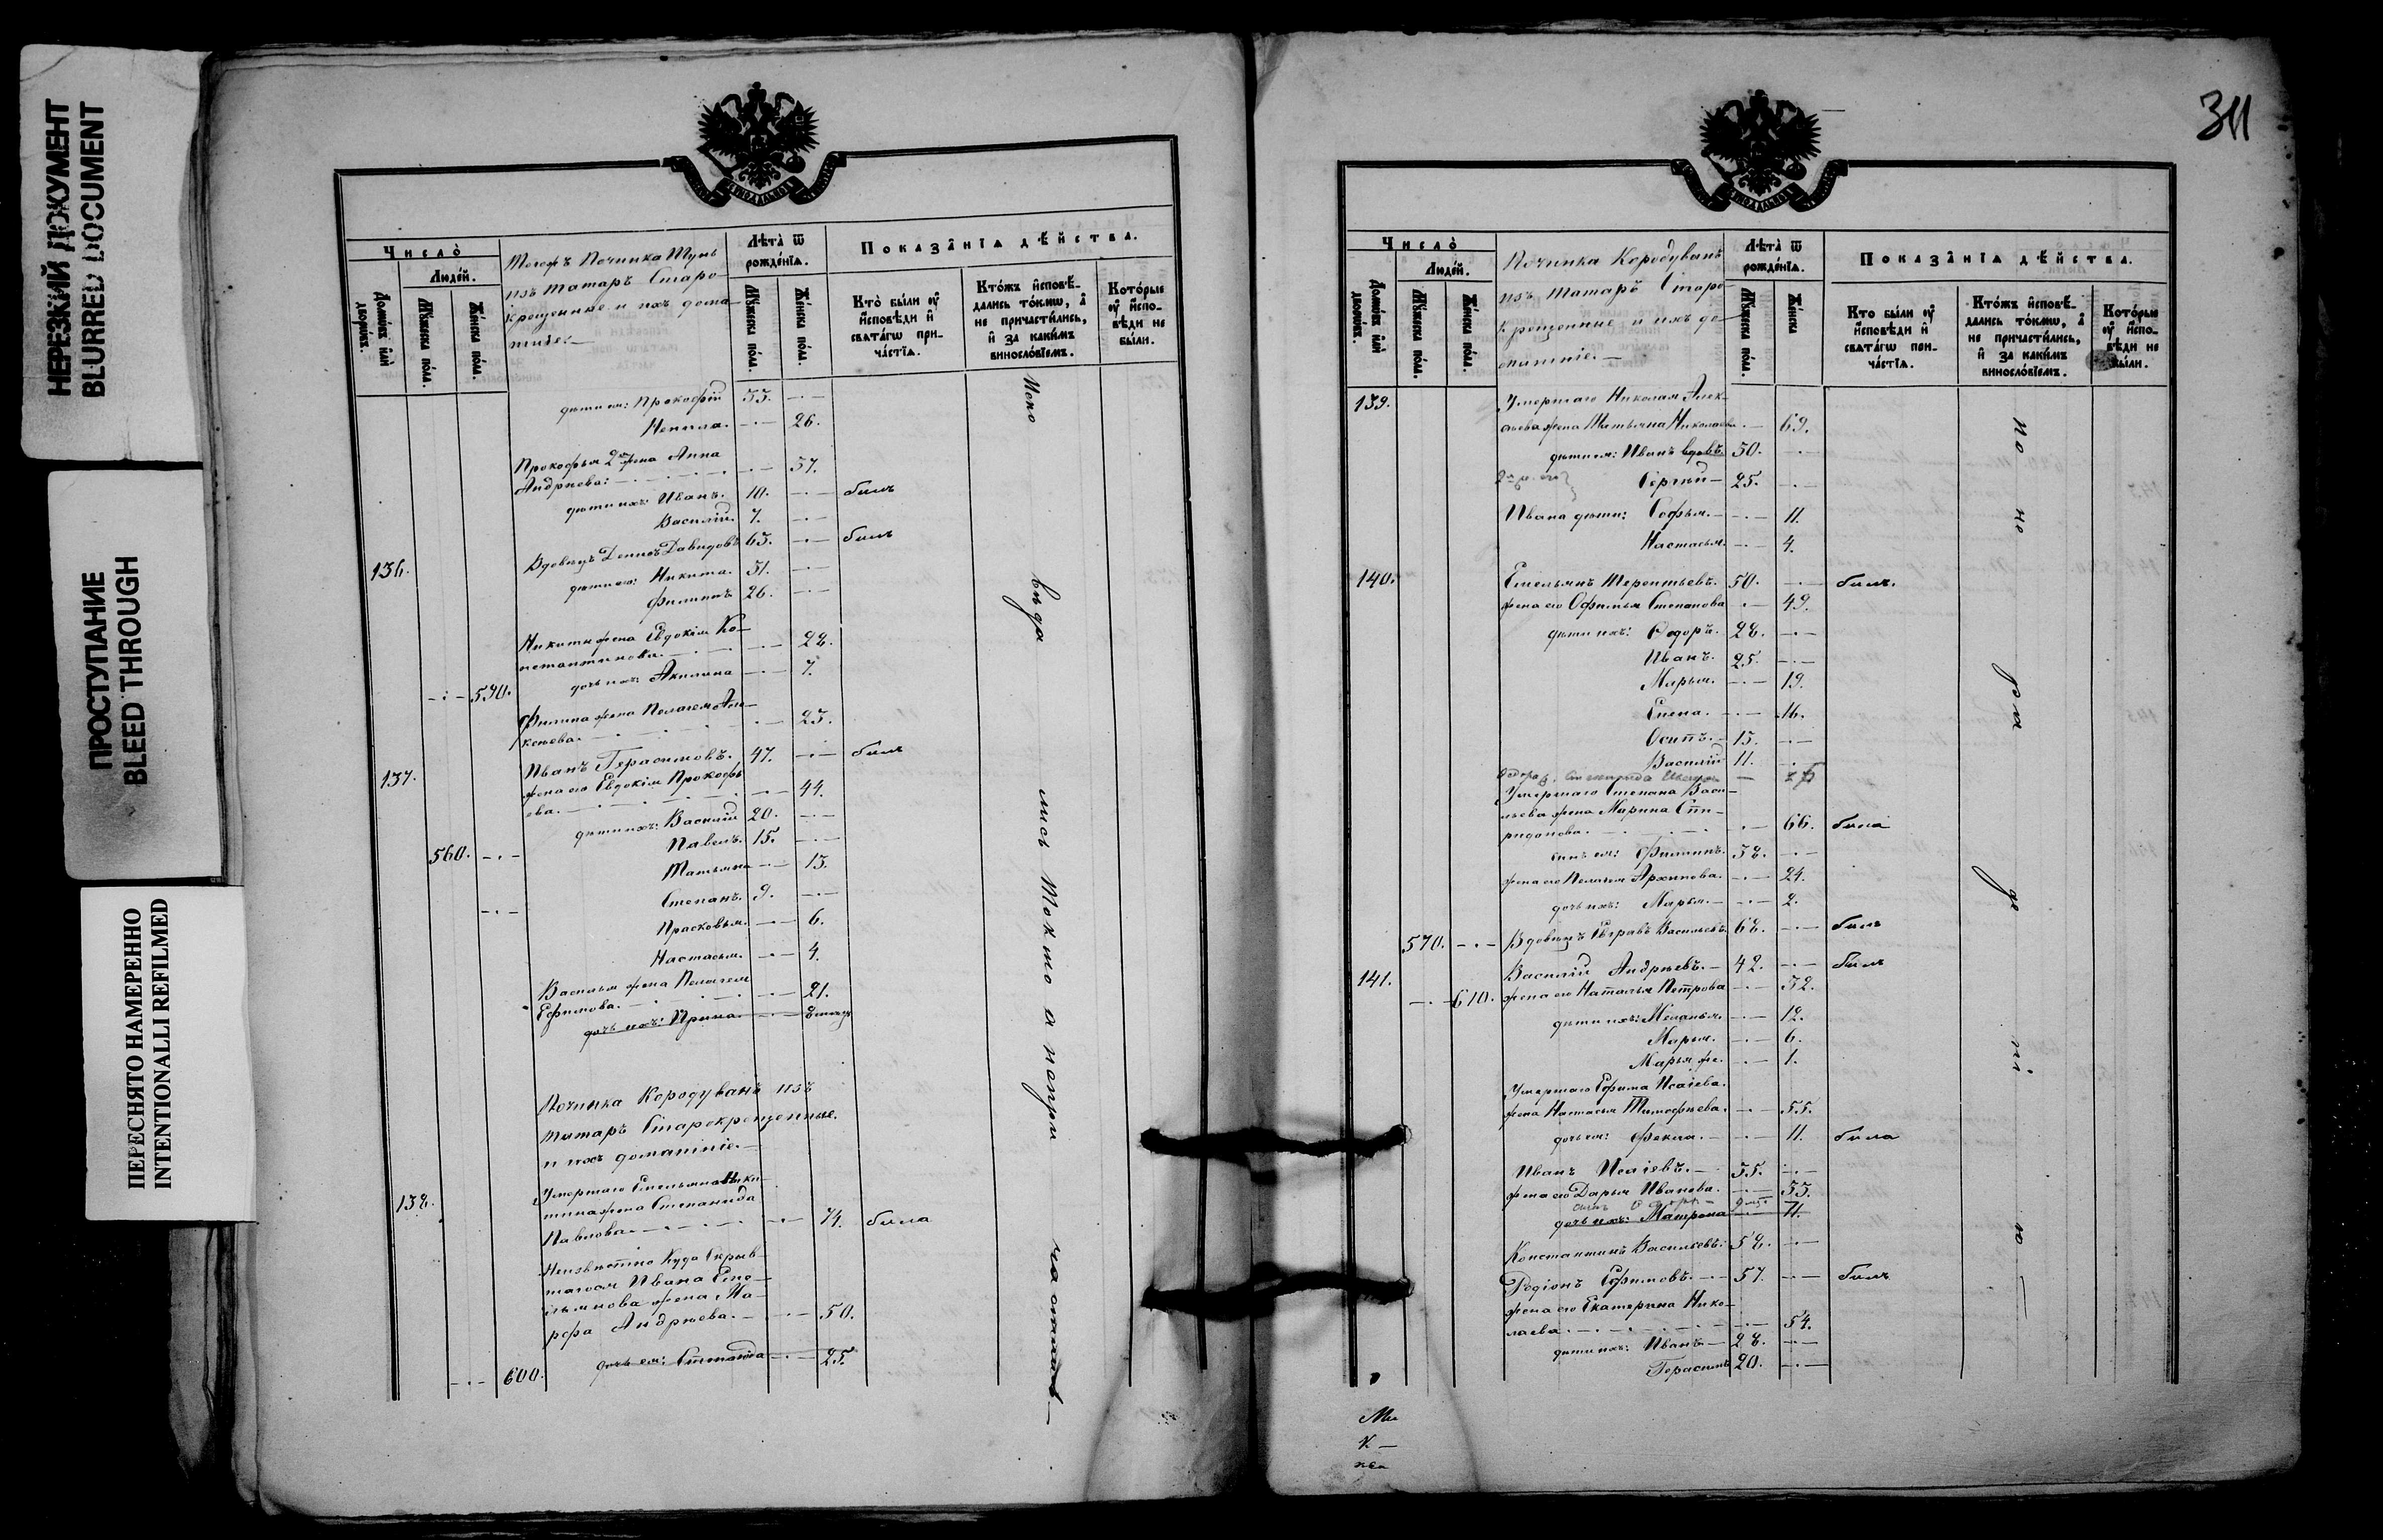 НЕРЕЗКИЙ ДОКУМЕНТ
BLURRED DOCUMENT
ПРОСТУПАНИЕ
BLEED THROUGH
ПЕРЕСНЯТО НАМЕРЕННО
INTENTIONALLI REFILMED
Число̀
Люде́й.
Домо́въ и҆лѝ дворо́въ.
Мꙋ́жеска по́ла.
Же́нска по́ла.
Тогожъ Починка
изъ татаръ Старо-
крещенные и ихъ дома-
шніе:—
Лѣта̀ ѿ рожде́нїѧ.
Мꙋ́жеска по́ла.
Же́нска по́ла.
Показа̑нїѧ дѣ́йства.
Кто̀ бы́ли оу҆ и҆́сповѣди и҆ свѧта́гѡ при-
ча́стїѧ.
Кто́жъ и҆сповѣ́-
дались то́кмѡ, а҆
не причасти́лись,
и҆ за каки́мъ
винosло́вїемъ.
Которые
оу҆ и҆́спо-
вѣди не
бы́ли.
дѣти ея: Прокофій 33. —·—
Ненила. —·— 26.
Прокофья 2я жена Анна
Андреева: —·— 37.
дѣти ихъ: Иванъ. 10. —·— былъ
Василій. 7. —·—
136. Вдовецъ Денисъ Давидовъ 63. —·— былъ
дѣти его: Никита. 31. —·—
Филиппъ 26. —·—
Никиты жена Евдокія Ко-
нстантинова. —·— 28.
дочь ихъ: Акилина —·— 7.
—·— 590.
Филипа жена Пелагея Але-
ксѣева. —·— 23.
137. Иванъ Герасимовъ. 47. —·— былъ
жена его Евдокія Прокофь-
ева. —·— 44.
дѣти ихъ: Василій 20. —·—
560. —·— Павелъ. 15. —·—
Татьяна —·— 13.
—·— Степанъ. 9. —·—
Прасковья. —·— 6.
Настасья. —·— 4.
Василья жена Пелагея
Ефимова. —·— 21.
дочь ихъ: Ирина. —·—
Починка Кородуванъ изъ
татаръ Старокрещенные
и ихъ домашніе.—
138. Умершаго Емельяна Ники-
тина жена Степанида
Павлова. —·— 74. была
Неизвѣстно куда скрыв-
шагося Ивана Еме-
льянова жена Ма-
рфа Андрѣева. —·— 50.
—·— 600. дочь ея: Степанида —·— 25.
Испо вѣда лись токмо а непри частились—
311
Число̀
Люде́й.
Домо́въ и҆лѝ дворо́въ.
Мꙋ́жеска по́ла.
Же́нска по́ла.
Починка Кородуванъ
изъ Татаръ Старо-
крещенные и ихъ до-
машніе.—
Лѣта̀ ѿ рожде́нїѧ.
Мꙋ́жеска по́ла.
Же́нска
Показа̑нїѧ дѣ́йства.
Кто бы́ли оу҆
и҆́сповѣди и҆
свѧта́гѡ при-
ча́стїѧ.
Кто́жъ и҆сповѣ́-
дались то́кмѡ, а҆
не причасти́лись,
и҆ за каки́мъ
винosло́вїемъ.
Которые
оу҆ и҆́спо-
вѣди не
бы́ли.
139. Умершаго Николая Алек-
сѣева жена Татьяна Николаева —·— 69.
дѣти ея: Иванъ вдовъ. 50. —·—
Сергѣй — 25. —·—
Ивана дѣти: Софья. —·— 11.
Настасья. —·— 4.
140. Емельянъ Терентьевъ. 50. —·— былъ.
жена его Офимья Степанова —·— 49.
дѣти ихъ: Ѳедоръ. 28. —·—
Иванъ. 25. —·—
Марья. —·— 19.
Елена. —·— 16.
Осипъ. 15. —·—
Василій 11. —·—
Ѳедора ж. Степанида
Умершаго Степана Васи-
льева жена Марина Спи-
ридонова. —·— 66. была
сынъ ея: Филиппъ. 38. —·—
жена его Пелагея Архипова. —·— 24.
дочь ихъ: Марья. —·— 2.
570. —·— Вдовецъ Евграфъ Васильевъ. 68. —·— былъ
141. Василій Андрѣевъ. — 42. —·— былъ
—·— 610. жена его Наталья Петрова —·— 32.
дѣти ихъ: Меланья. —·— 12.
Марья. —·— 6.
Марья же. —·— 1.
Умершаго Ефима Исаіева.
жена Настасья Тимофѣева. —·— 55.
дочь ея: Фекла. —·— 11. была
Иванъ Исаіевъ. — 35. —·—
жена его Дарья Ивановa. —·— 33.
сынъ
дочь ихъ: Матрона —·— 11.
Константинъ Васильевъ: 58. —·—
Родіонъ Ефимовъ. —·— 57. —·— былъ
жена его Екатерина Нико-
лаева. —·— 54.
дѣти ихъ: Иванъ — 28. —·—
Герасимъ 20. —·—
по не ра дѣ ні ю —